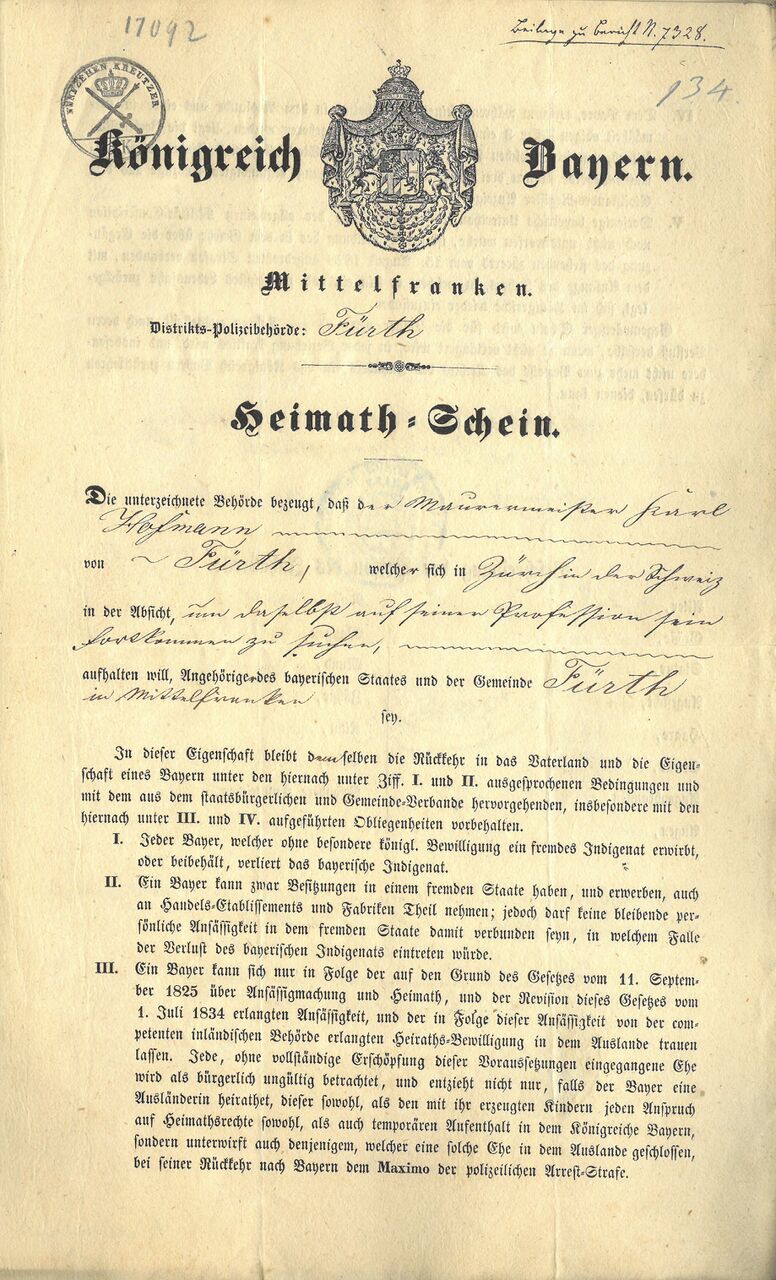 17092
Beilage zu Bericht N. 7328.
134.
FÜNFZEHEN KREUTZER
Königreich Bayern.
Mittelfranken.
Distrikts-Polizeibehörde: Fürth
Heimath-Schein.
Die unterzeichnete Behörde bezeugt, daß der Maurermeister Karl
Hofmann
von Fürth, welcher sich in Zürch in der Schweiz
in der Absicht, um daselbst auf seiner Profession sein
Fortkommen zu suchen,
aufhalten will, Angehöriger des bayerischen Staates und der Gemeinde Fürth
in Mittelfranken
sey.
In dieser Eigenschaft bleibt demselben die Rückkehr in das Vaterland und die Eigen-
schaft eines Bayern unter den hiernach unter Ziff. I. und II. ausgesprochenen Bedingungen und
mit dem aus dem staatsbürgerlichen und Gemeinde-Verbande hervorgehenden, insbesondere mit den
hiernach unter III. und IV. aufgeführten Obliegenheiten vorbehalten.
I. Jeder Bayer, welcher ohne besondere königl. Bewilligung ein fremdes Indigenat erwirbt,
oder beibehält, verliert das bayerische Indigenat.
II. Ein Bayer kann zwar Besitzungen in einem fremden Staate haben, und erwerben, auch
an Handels-Etablissements und Fabriken Theil nehmen; jedoch darf keine bleibende per-
sönliche Ansässigkeit in dem fremden Staate damit verbunden seyn, in welchem Falle
der Verlust des bayerischen Indigenats eintreten würde.
III. Ein Bayer kann sich nur in Folge der auf den Grund des Gesetzes vom 11. Septem-
ber 1825 über Ansässigmachung und Heimath, und der Revision dieses Gesetzes vom
1. Juli 1834 erlangten Ansässigkeit, und der in Folge dieser Ansässigkeit von der com-
petenten inländischen Behörde erlangten Heiraths-Bewilligung in dem Auslande trauen
lassen. Jede, ohne vollständige Erschöpfung dieser Voraussetzungen eingegangene Ehe
wird als bürgerlich ungültig betrachtet, und entzieht nicht nur, falls der Bayer eine
Ausländerin heirathet, dieser sowohl, als den mit ihr erzeugten Kindern jeden Anspruch
auf Heimathsrechte sowohl, als auch temporären Aufenthalt in dem Königreiche Bayern,
sondern unterwirft auch denjenigem, welcher eine solche Ehe in dem Auslande geschlossen,
bei seiner Rückkehr nach Bayern dem Maximo der polizeilichen Arrest-Strafe.